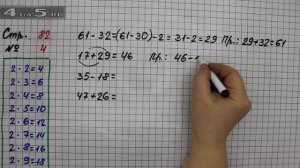 Стр. 82
№ 4
61-32=(61-30)-2=31-2=29 Пр.: 29+32=61
17+29=46 Пр.: 46-
35-18=
47+26=
2·2=4
2·3=6
2·4=8
2·5=10
2·6=12
2·7=14
2·8=16
2·9=18